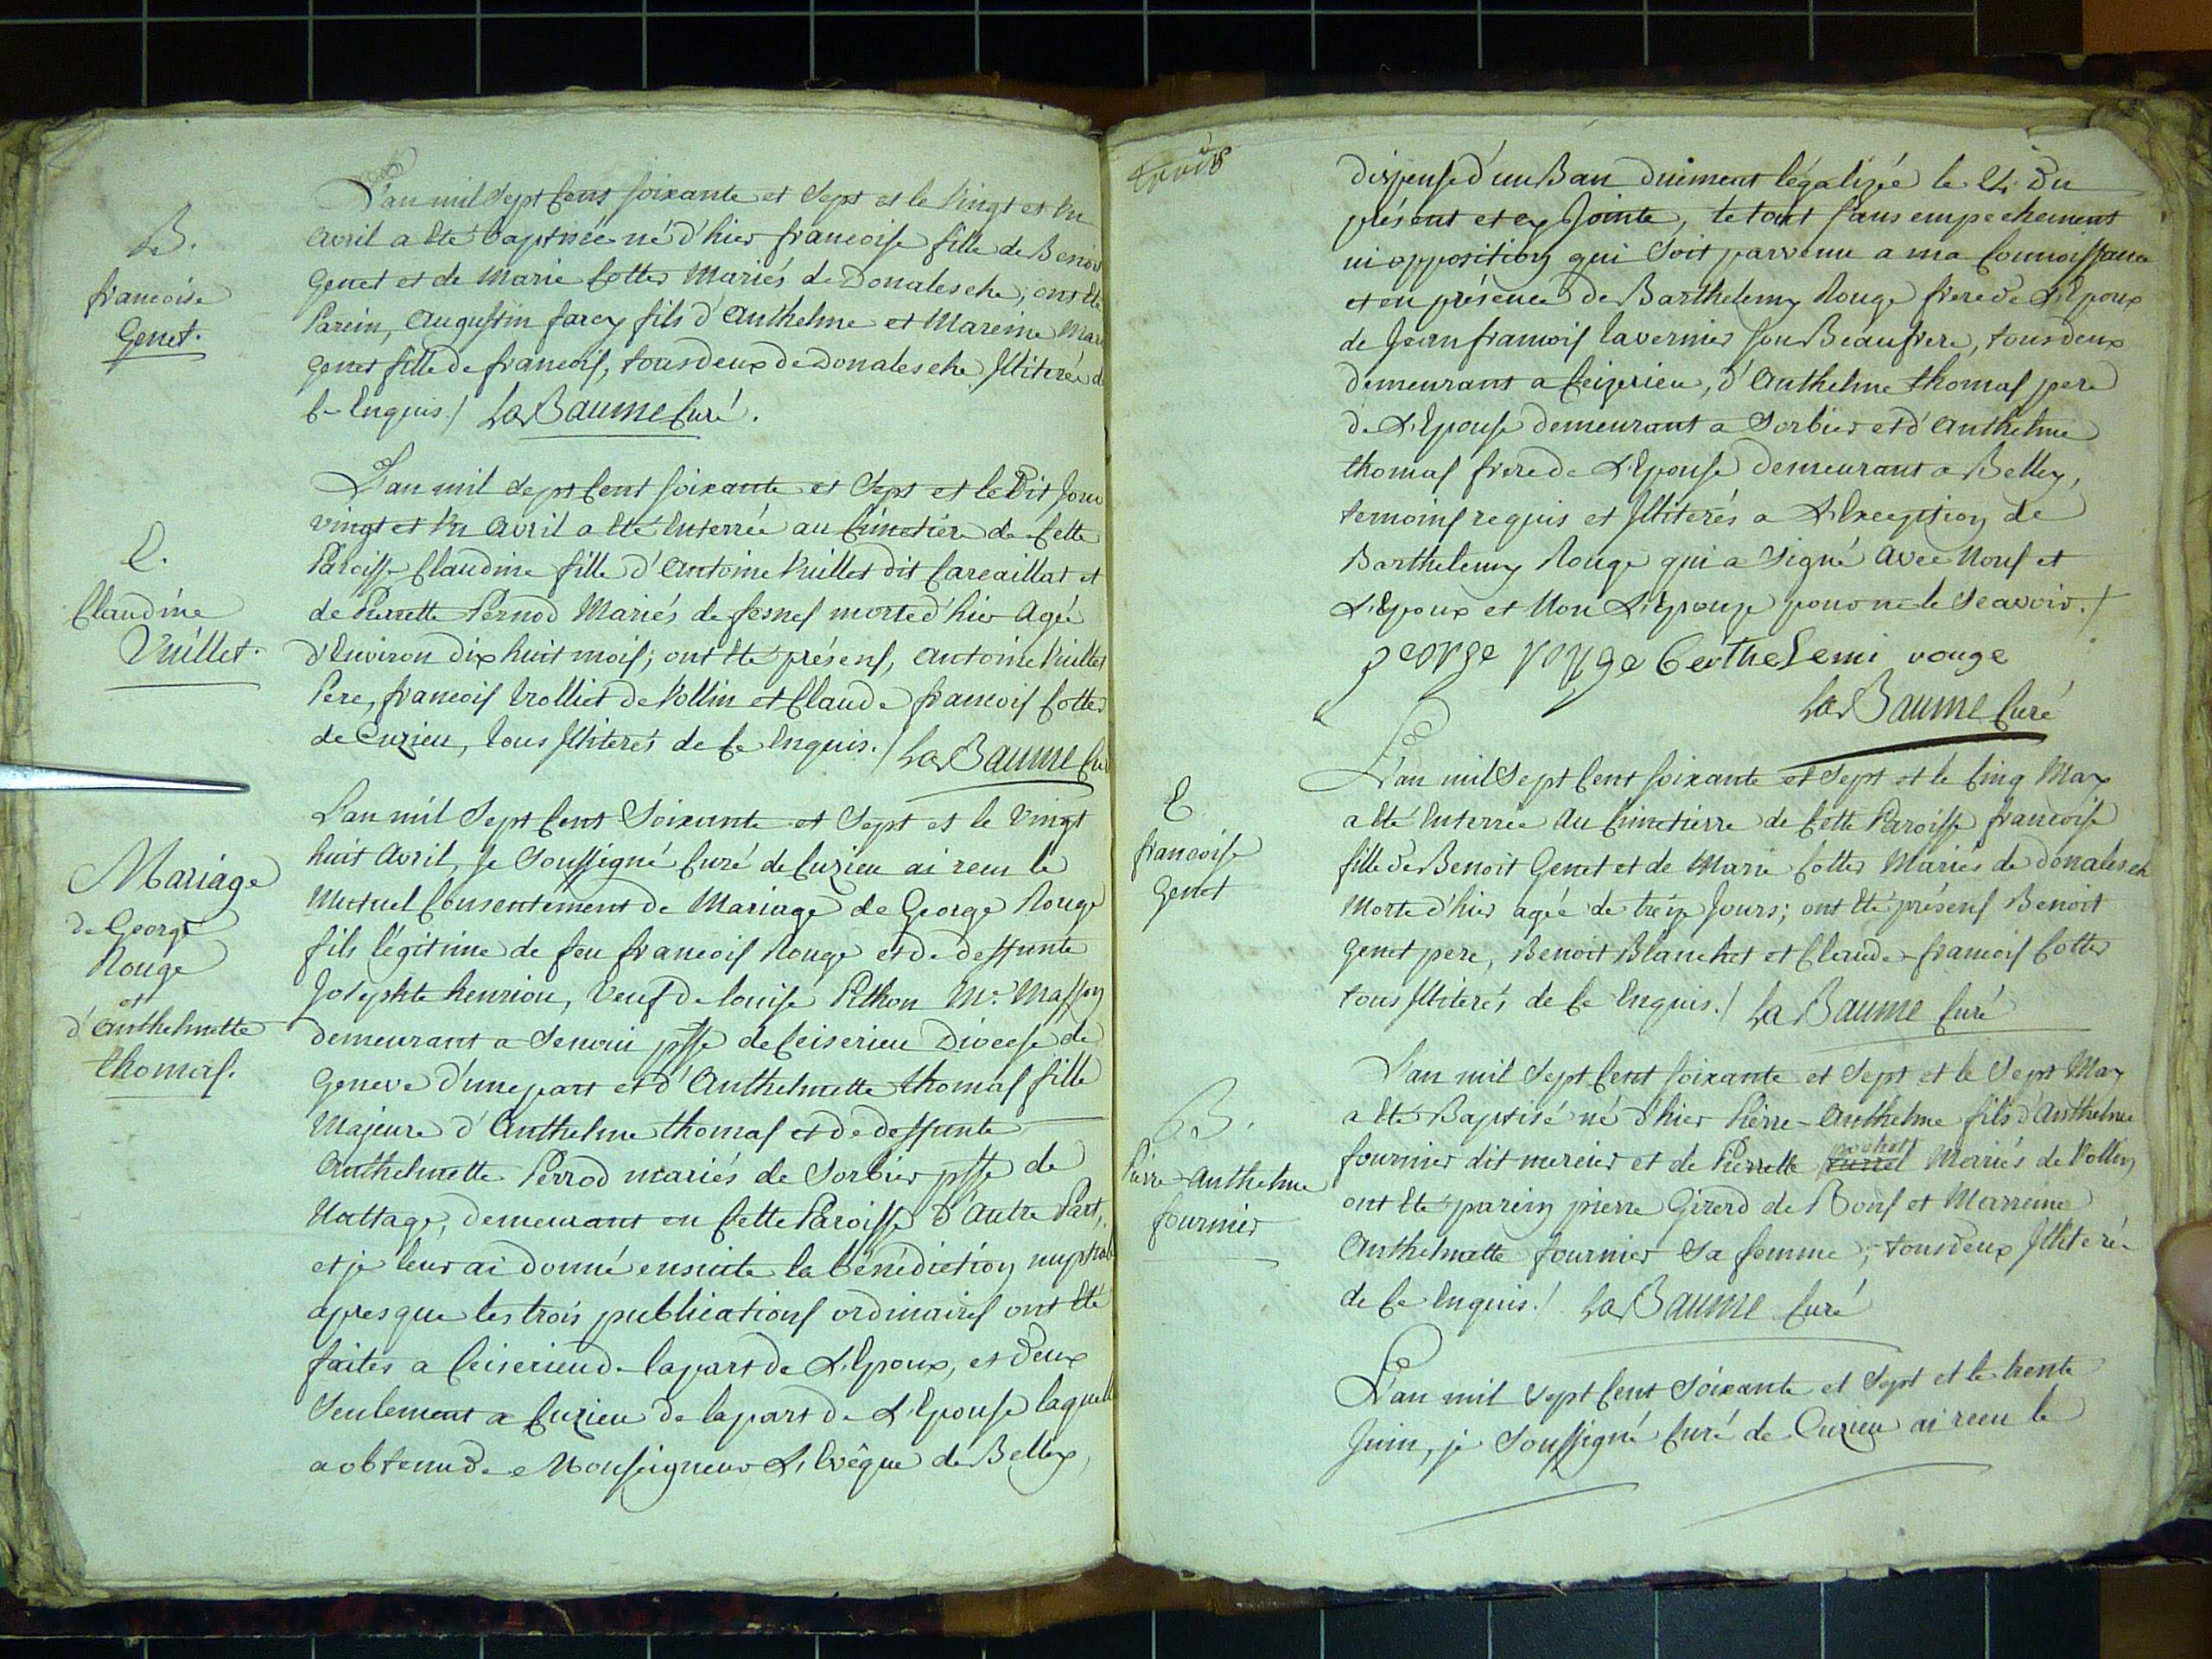 B.
francoise
Genet.
L'an mil Sept Cent soixante et Sept et le vingt et un
avril a été baptisée né d'hier francoise fille de Benoit
Genet et de Marie Cotter Mariés de Donalesche, ont été
Parein, Augustin farcy fils d'Anthelme et Mareine Mari
Genet fille de francois, tous deux de Donalesche Illiterés de
Ce Enquis./ La Baume Curé.
E.
Claudine
Vuillet.
L'an mil Sept Cent soixante et Sept et le Dit Jour
vingt et un avril a été Enterrée au Cimetière de Cette
Paroisse Claudine fille d'Antoine Vuillet dit Carcaillat et
de Pierrette Pernod Mariés de fesnes morte d'hier Agée
d'Environ Dix huit mois; ont été présens, Antoine Vuillet
Pere, francois Trolliet de Vollin et Claude francois Cotter
de Cuzieu, tous Illiterés de Ce Enquis./ La Baume Cur
Mariage
de George
Rouge
et
d'Anthelmette
thomas.
L'an mil Sept Cent Soixante et Sept et le vingt
huit Avril, Je Soussigné Curé de Cuzieu ai reçu le
Mutuel Consentement de Mariage de George Rouge
fils légitime de feu francois Rouge et de deffunte
Josephte henriou, Veuf de louise Pithon Me. Masson
demeurant a Senoui psse de Ceiserieu Diocese de
Geneve d'une part et d'Anthelmette thomas fille
Majeure d'Anthelme thomas et de deffunte
Anthelmette Perrod mariés de Sorbier psse de
Nattage, demeurant en Cette Paroisse d'Autre Part,
et je leur ai donné ensuite la bénédiction nuptiale
apres que les trois publications ordinaires ont été
faites a Ceiserieu de la part de L'Epoux, et deux
Seulement a Cuzieu de la part de L'Epouse laquelle
a obtenu de Monseigneur L'Evêque de Belley,
dispense d'un Ban duiment légalizée le 24 du
présent et cy Jointe, le tout sans empechement
ni opposition qui Soit parvenu a ma Connoissance
et en présence de Barthelemy Rouge frere de L'Epoux
de Jean francois lavernier son Beaufrere, tous deux
demeurant a Ceizerieu, d'Anthelme thomas pere
de L'Epouse demeurant a Sorbier et d'Anthelme
thomas frere de L'Epouse demeurant a Belley,
temoins requis et Illiterés a L'Exception de
Barthelemy Rouge qui a Signé avec Nous et
L'Epoux et Non L'Epouze pour ne le Scavoir./
george rouge berthelemi rouge
La Baume Curé
E
francoise
Genet
L'an mil Sept Cent soixante et Sept et le Cinq May
a été Enterrée Au Cimetierre de Cette Paroisse francoise
fille de Benoit Genet et de Marie Cotter Mariés de donalesch
Morte d'hier agée de treize Jours; ont été présens Benoit
Genet pere, Benoit Blanchet et Claude-francois Cotter
tous Illiterés de Ce Enquis./ La Baume Curé
B.
Pierre-Anthelme
fournier
L'an mil Sept Cent soixante et Sept et le Sept May
a été Baptisé né d'hier Pierre-Anthelme fils d'Anthelme
pochet
fournier dit mercier et de Pierrette Mariés de Vollin
ont été parein pierre Girerd de Bons et Marreine
Anthelmette fournier Sa femme, tous deux Illiteré
de Ce Enquis./ La Baume Curé
L'an mil Sept Cent Soixante et Sept et le trente
Juin, je Soussigné Curé de Cuzieu ai reçu le